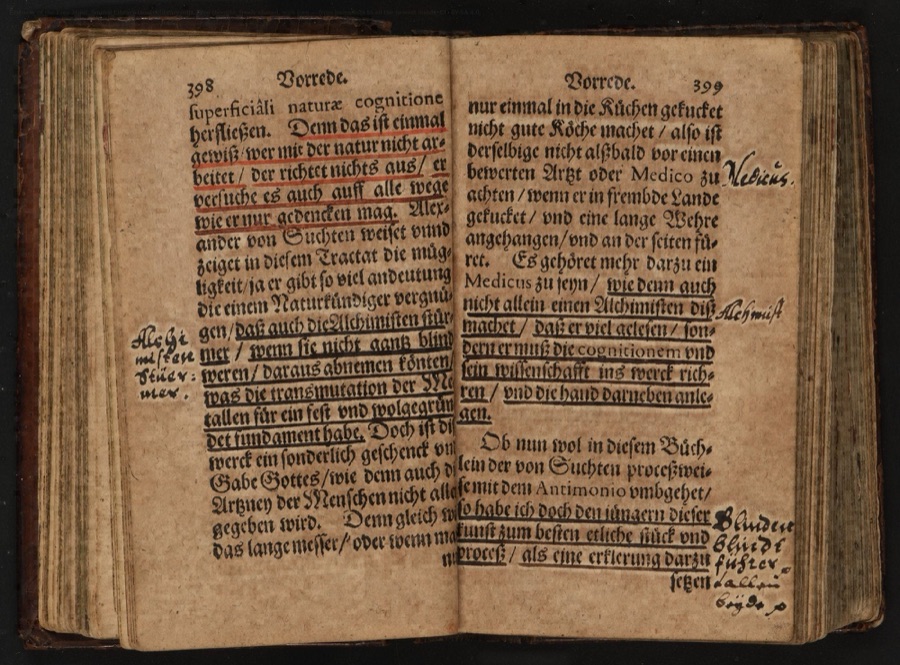 398 Vorrede.
superficiâli naturæ cognitione
herfließen. Denn das ist einmal
gewiß/ wer mit der natur nicht ar-
beitet/ der richtet nichts aus/ er
versuche es auch auff alle wege
wie er nur gedencken mag. Alex-
ander von Suchten weiset vnnd
zeiget in diesem Tractat die müg-
ligkeit/ ja er gibt so viel andeutung
die einem Naturkündiger vergnü-
gen/ daß auch die Alchimisten stür-
mer/ wenn sie nicht gantz blind
weren/ daraus abnemen könten/
was die transmutation der Me
tallen für ein fest vnd wolgegrün
det fundament habe. Doch ist di
werck ein sonderlich geschenck vn
Gabe Gottes/ wie denn auch d
Artzney der Menschen nicht alle
gegeben wird. Denn gleich w
das lange messer/ oder wenn ma
n
Alchi
misten
Stür-
mer.
Vorrede. 399
nur einmal in die Küchen gekucket
nicht gute Köche machet/ also ist
derselbige nicht alßbald vor einen
bewerten Artzt oder Medico zu
achten/ wenn er in frembde Lande
gekucket/ vnd eine lange Wehre
angehangen/ vnd an der seiten fü-
ret. Es gehöret mehr darzu ein
Medicus zu seyn/ wie denn auch
nicht allein einen Alchimisten diß
machet/ daß er viel gelesen/ son-
dern er muß die cognitionem vnd
sein wissenschafft ins werck rich-
ren/ vnd die hand darneben anle-
gen.
Ob nun wol in diesem Büch-
lein der von Suchten proceßwei-
se mit dem Antimonio vmbgehet/
so habe ich doch den jüngern dieser
kunst zum besten etliche stück vnd
proceß/ als eine erklerung darzu
setzen
Medicus.
Alchmist
Blinden
blinde
führer
fallen
beyde